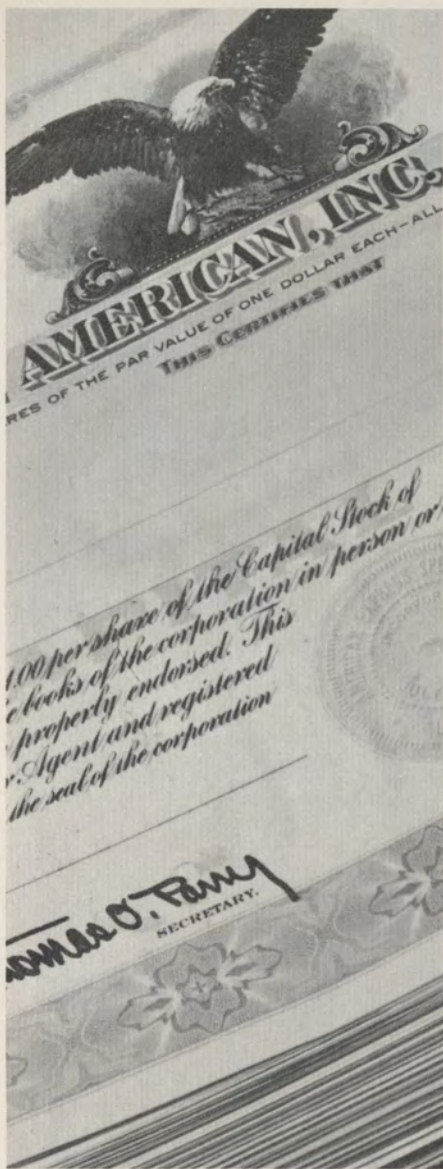 AMERICAN, INC.
RES OF THE PAR VALUE OF ONE DOLLAR EACH—ALL
THIS CERTIFIES THAT
1.00 per share of the Capital Stock of
e books of the corporation in person or
properly endorsed. This
r Agent and registered
the seal of the corporation
homas O. Parry
SECRETARY.